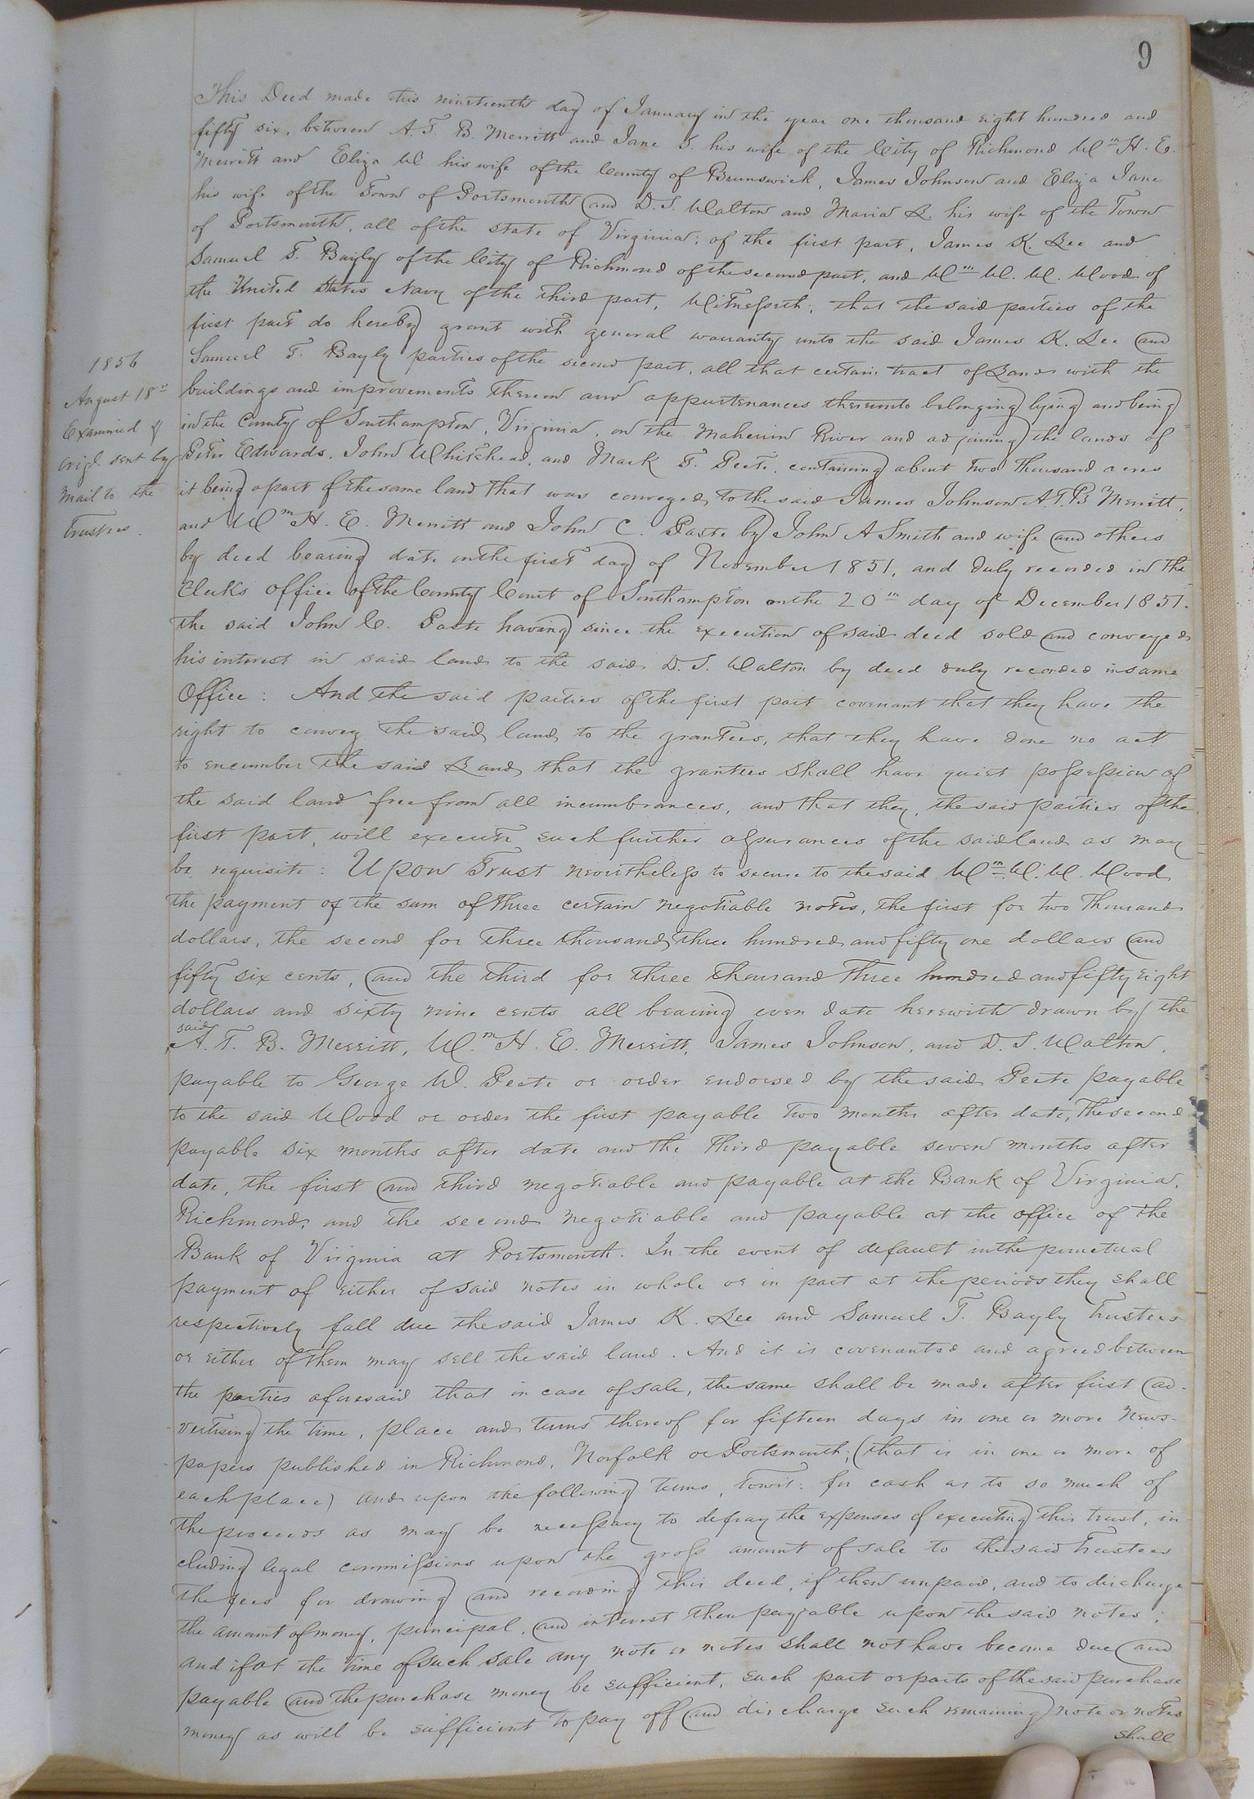 9
This Deed made this nineteenth day of January in the year one thousand eight hundred and
fifty six, between A. T. B. Merritt and Jane T. his wife of the City of Richmond Wm H. E.
Merritt and Eliza W his wife of the County of Brunswick, James Johnson and Eliza Jane
his wife of the Town of Portsmouth and D. S. Walton and Maria L. his wife of the Town
of Portsmouth, all of the state of Virginia; of the first part, James K. Lee and
Samuel T. Bayly of the City of Richmond of the second part, and Wm W. W. Wood of
the United States Navy of the third part, Witnesseth; that the said parties of the
first part do hereby grant with general warranty unto the said James K. Lee and
Samuel T. Bayly parties of the second part, all that certain tract of Land with the
buildings and improvements thereon and appurtenances thereunto belonging lying and being
in the County of Southampton, Virginia, on the Meherrin River and adjoining the lands of
Peter Edwards, John Whitehead, and Mark T. Peete, containing about two thousand acres
it being a part of the same land that was conveyed to the said James Johnson A. T. B Merritt,
and Wm H. E. Merritt and John C. Paste by John A Smith and wife and others
by deed bearing date on the first day of November 1851, and duly recorded in the
Clerks office of the County Court of Southampton on the 20th day of December 1851.
the said John C. Paste having since the execution of said deed sold and conveyed
his interest in said land to the said D. S. Walton by deed duly recorded in same
Office: And the said parties of the first part covenant that they have the
right to convey the said land to the grantees, that they have done no act
to encumber the said Land, that the grantees shall have quiet possession of
the said land free from all incumbrances, and that they, the said parties of the
first part, will execute such further assurances of the said land as may
be requisite: Upon Trust nevertheless to secure to the said Wm W. W. Wood
the payment of the sum of three certain negotiable notes, the first for two thousand
dollars, the second for three thousand three hundred and fifty one dollars and
fifty six cents, and the third for three thousand three hundred and fifty eight
dollars and sixty nine cents all bearing even date herewith drawn by the
said A. T. B. Merritt, Wm H. E. Merritt, James Johnson, and D. S. Walton,
payable to George W. Peete or order endorsed by the said Peete payable
to the said Wood or order the first payable two months after date, the second
payable six months after date and the third payable seven months after
date, the first and third negotiable and payable at the Bank of Virginia,
Richmond, and the second negotiable and payable at the office of the
Bank of Virginia at Portsmouth. In the event of default in the punctual
payment of either of said notes in whole or in part at the periods they shall
respectively fall due the said James K. Lee and Samuel T. Bayly Trustees
or either of them may sell the said land. And it is covenanted and agreed between
the parties aforesaid that in case of sale, the same shall be made after first ad-
vertising the time, place and terms thereof for fifteen days in one or more News-
papers published in Richmond, Norfolk or Portsmouth; (that is in one or more of
each place) and upon the following terms, towit: for cash as to so much of
the proceeds as may be necessary to defray the expenses of executing this trust, in
cluding legal commissions upon the gross amount of sale to the said Trustees
the fees for drawing and recording this deed, if then unpaid, and to discharge
the amount of money, principal, and interest then payable upon the said notes;
and if at the time of such sale any note or notes shall not have become due and
payable and the purchase money be sufficient, such part or parts of the said purchase
money as will be sufficient to pay off and discharge such remaining note or notes
shall
1856
August 18th
Examined &
origl. sent by
mail to the
Trustees.